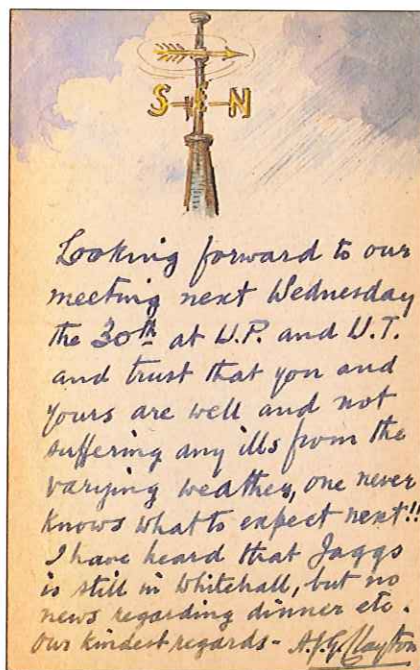 S E N
Looking forward to our
meeting next Wednesday
the 30th at W.P. and W.T.
and trust that you and
yours are well and not
suffering any ills from the
varying weather, one never
knows what to expect next!!
I have heard that Jaggs
is still in Whitehall, but no
news regarding dinner etc.
Our kindest regards - A.J.G. Clayton